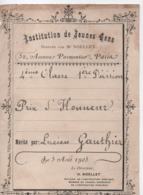 Institution de Jeunes Gens
DIRIGÉE PAR Mr NOELLET
52, Avenue Parmentier, Paris
4ème Classe 1ère Division
Prix d'Honneur
Mérité par Lucien Gauthier
Le 3 Août 1903
Le Directeur,
H. NOELLET